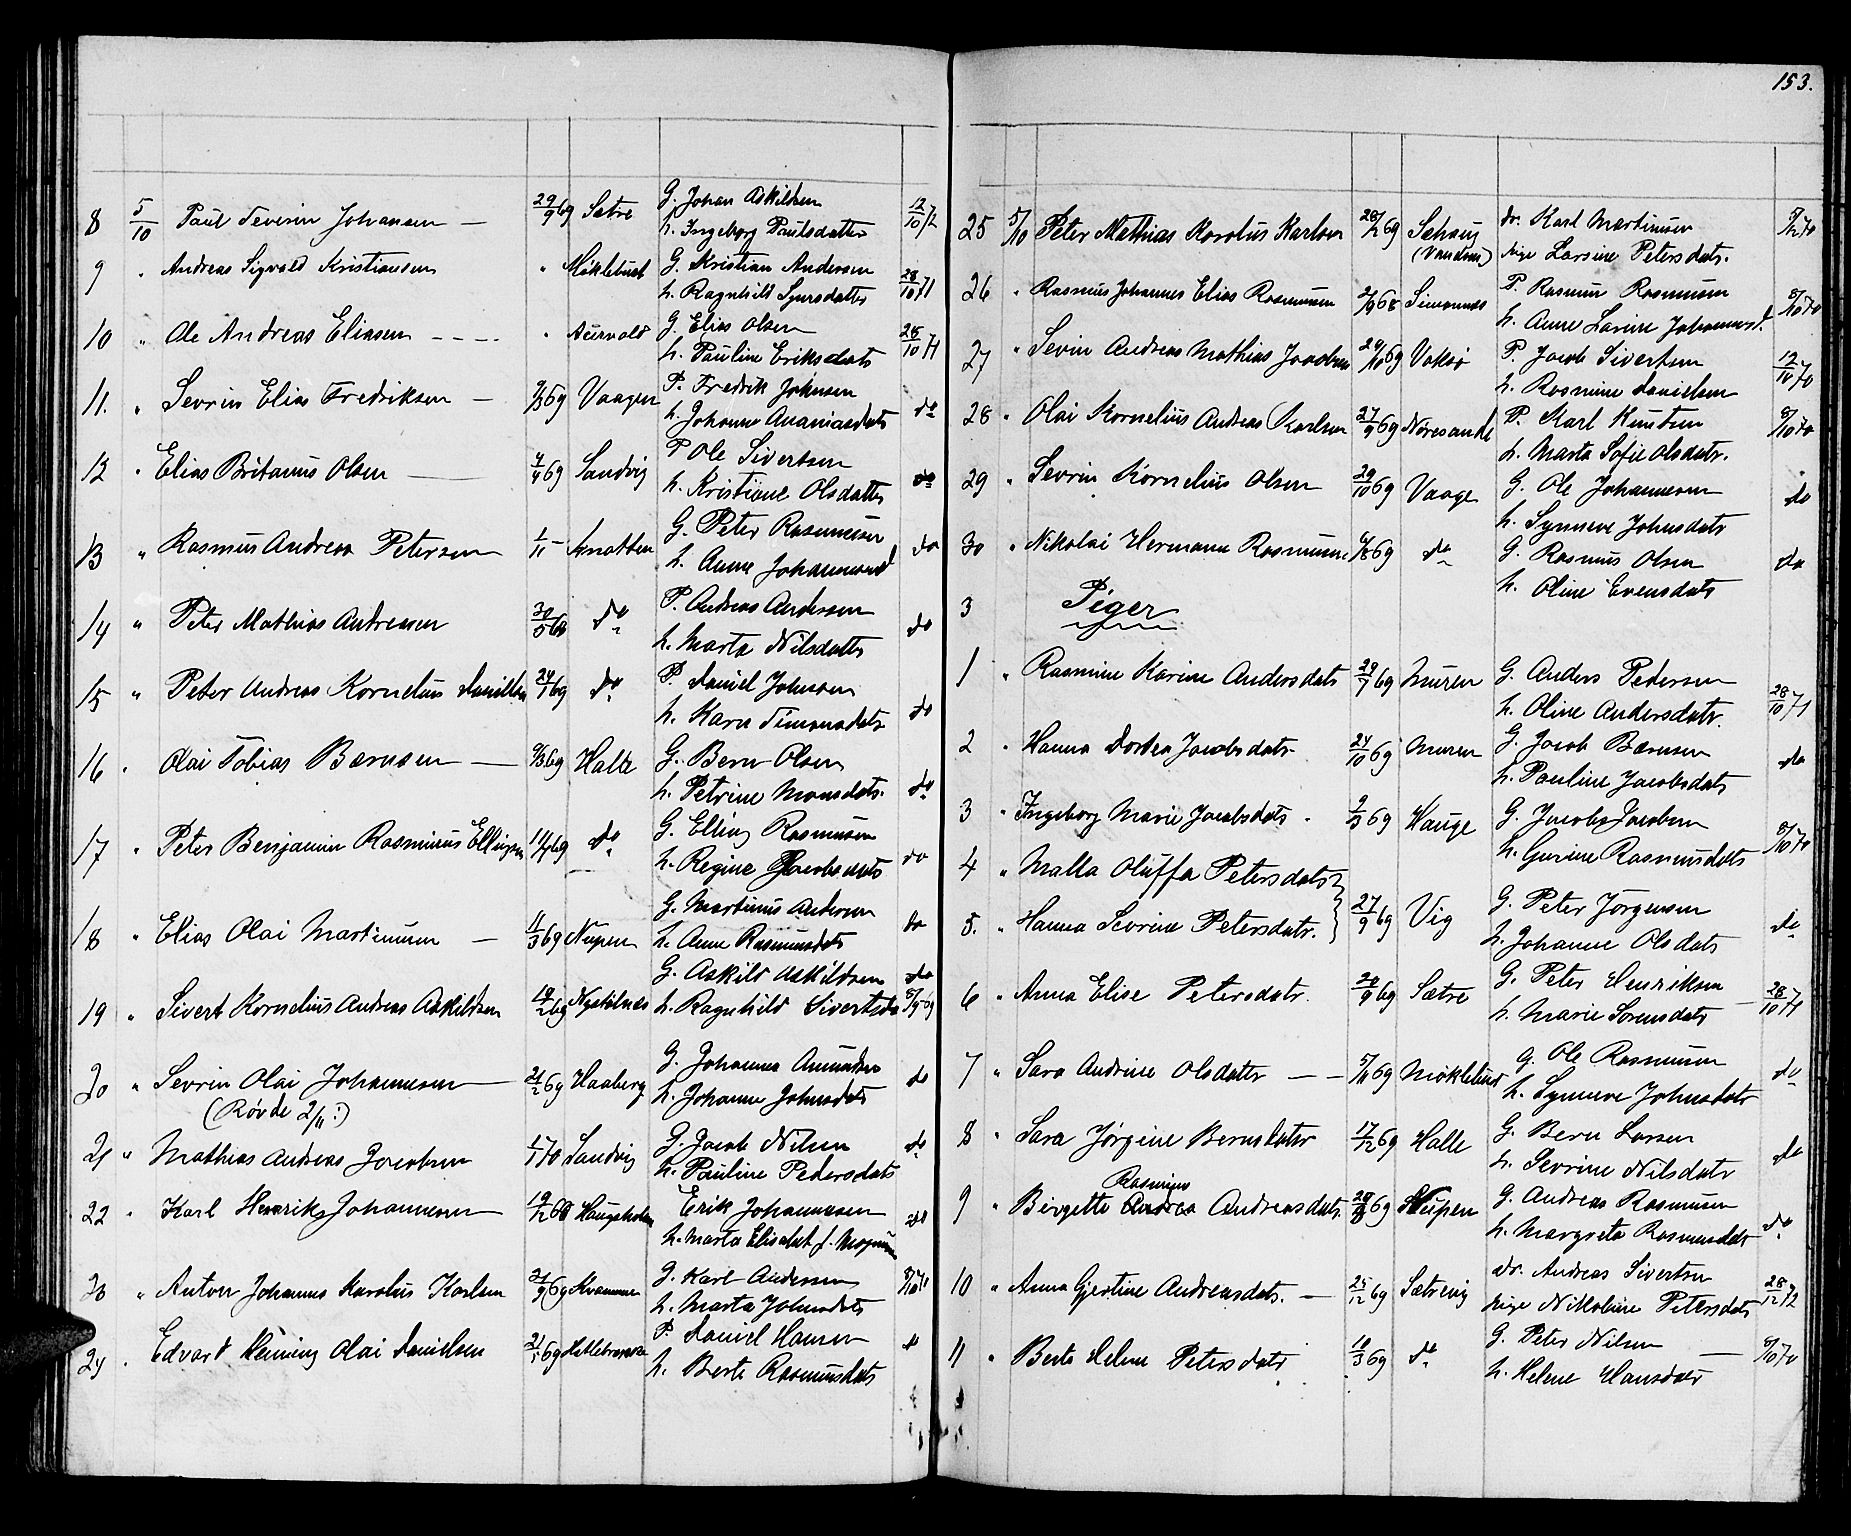 153.
8 5/10 Paul Severin Johansen — 29/9 69 Sætre G. Johan Askildsen 12/10 72
h. Ingeborg Paulsdatter
9 " Andreas Sigvald Kristiansen " Møklebust G. Kristian Andersen 28/10 71
h. Ragnhild Sjursdatter
10 " Ole Andreas Eliasen - - - - " Aurvold G. Elias Olsen 28/10 71
h. Pauline Eriksdatr
11. " Sevrin Elias Fredriksen — 9/3 69 Vaagen P. Fredrik Johnsen do
h. Johanne Ananiasdatr
12 " Elias Britanus Olsen — 4/4 69 Sandvig P Ole Sivertsen do
h. Kristiane Olsdatter
13 " Rasmus Andreas Petersen 1/11 - Knotten G. Peter Rasmussen do
h. Anne Johannesd
14 " Peter Mathias Andreasen 30/5 68 do P. Andreas Andersen do
h. Marta Nilsdatter
15 " Peter Andreas Kornelius Danielsen 24/1 69 do P. Daniel Johnsen do
h. Karn Simonsdatr
16 " Olai Tobias Bernsen — 9/3 69 Halle G. Bern Olsen do
h. Petrine Monsdatr.
17 " Peter Benjamin Rasminus Ellingsen 14/4 69 do G. Elling Rasmussen do
h. Regine Jacobsdatr
18 " Elias Olai Martinusen — 11/3 69 Nupen G. Martinus Andersen do
h. Anne Rasmusdatr
19 " Sivert Kornelius Andreas Askildsen 12/2 69 Nystølnes G. Askild Askildsen do
h. Ragnhild Sivertsdr 8/9 69
20 " Sevrin Olai Johannesen — 21/2 69 Haaberg G. Johannes Amundsen do
(Røvde 2/11:) h. Johanne Johnsdatr
21 " Mathias Andreas Jacobsen 1/1 70 Sandvig G. Jacob Nilsen do
h. Pauline Pedersdatr
22 " Karl Henrik Johannesen 19/12 68 Haugsholm Erik Johannesen do
h. Marta Elisabet f. Magnusen
23 " Anton Johannes Karolus Karlsen 21/9 69 Kvamme G. Karl Andersen 8/10 71
h. Marta Johnsdatr
24 " Edvart Heining Olai Danielsen 21/1 69 P. Daniel Hansen do
h. Berte Rasmusdatr
25 5/10 Peter Mathias Karolus Karlsen 28/2 69 Sehaug dr. Karl Martinusen 8/12 70
(Vanem) Pige Larsine Petersdatr.
26 " Rasmus Johannes Elias Rasmussen 2/9 68 Simonnes P. Rasmus Rasmussen 8/10 70
h. Anne Larine Johannesd.
27 " Sevrin Andreas Mathias Jacobsen 24/10 69 Voksø P. Jacob Sivertsen 12/10 70
h. Rasmine Danielsen
28 " Olai Kornelius Andreas Karlsen 27/9 69 Nøresande P. Karl Knutsen 8/10 70
h. Marta Sofie Olsdatr.
29 " Sevrin Kornelius Olsen 29/10 69 Vaage G. Ole Johannesen do
h. Synneve Johnsdatr
30 " Nikolai Hermann Rasmussen 6/8 69 do G. Rasmus Olsen do
h. Oline Evensdatr
3 Piger
1 " Rasmine Karine Andersdatr 29/7 69 Muren G. Anders Pedersen 28/10 71
h. Oline Andersdatr.
2 " Hanna Dortea Jacobsdatr. 24/10 69 Muren G. Jacob Bernsen do
h. Pauline Jacobsdatr
3 " Ingeborg Marie Jacobsdatr. 2/3 69 Hauge G. Jacob Jacobsen 8/10 70
h. Gurine Rasmusdatr
4 " Malla Oluffa Petersdatr }
5. " Hanna Sevrine Petersdatr. } 27/9 69 Vig G. Peter Jørgensen do
h. Johanne Olsdatr
6 " Anna Elise Petersdatr. 20/9 69 Sætre G. Peter Henriksen 28/10 71
h. Marie Sørensdatr
7 " Sara Andrine Olsdatter — — 5/11 69 Møklebust G. Ole Rasmussen do
h. Synneve Johnsdatr
8 " Sara Jørgine Bernsdatter 17/12 69 Halle G. Bern Larsen do
h. Sevrine Nilsdatr
Rasmine
9 " Birgette Andrea Andreasdatr. 28/8 69 Nupen G. Andreas Rasmussen do
h. Margreta Rasmusdatr
10 " Anna Gjertine Andreasdatr. — 25/12 69 Sætrevig dr. Andreas Sivertsen 28/12 72
Pige Nikoline Petersdatr
11 " Berte Helene Petersdatr 10/3 69 do G. Peter Nilsen — 8/10 70
h. Helene Hansdatr